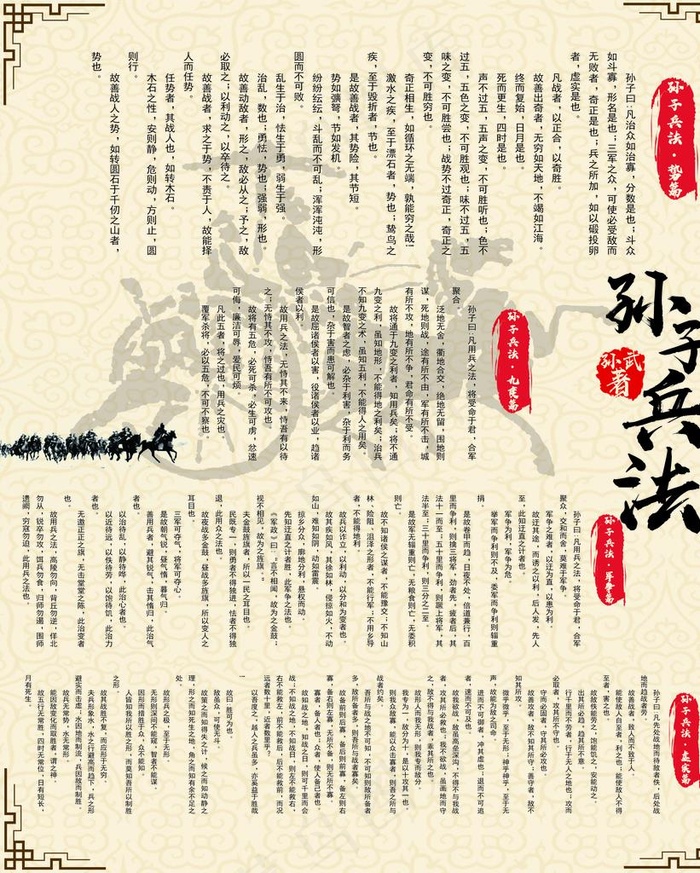 孙子兵法·势篇
孙子曰：凡治众如治寡，分数是也；斗众
如斗寡，形名是也；三军之众，可使必受敌而
无败者，奇正是也；兵之所加，如以碫投卵
者，虚实是也。
凡战者，以正合，以奇胜。
故善出奇者，无穷如天地，不竭如江海。
终而复始，日月是也。
死而更生，四时是也。
声不过五，五声之变，不可胜听也；色不
过五，五色之变，不可胜观也；味不过五，五
味之变，不可胜尝也；战势不过奇正，奇正之
变，不可胜穷也。
奇正相生，如循环之无端，孰能穷之哉！
激水之疾，至于漂石者，势也；鸷鸟之
疾，至于毁折者，节也。
是故善战者，其势险，其节短。
势如彍弩，节如发机
纷纷纭纭，斗乱而不可乱；浑浑沌沌，形
圆而不可败。
乱生于治，怯生于勇，弱生于强
治乱，数也；勇怯，势也；强弱，形也。
故善动敌者，形之，敌必从之；予之，敌
必取之；以利动之，以卒待之。
故善战者，求之于势，不责于人，故能择
人而任势。
任势者，其战人也，如转木石。
木石之性，安则静，危则动，方则止，圆
则行。
故善战人之势，如转圆石于千仞之山者，
势也。
孙子兵法
孙武著
孙子兵法·九变篇
孙子曰：凡用兵之法，将受命于君，合军
聚合。
泛地无舍，衢地合交，绝地无留，围地则
谋，死地则战，途有所不由，军有所不击，城
有所不攻，地有所不争，君命有所不受。
故将通于九变之利者，知用兵矣；将不通
九变之利，虽知地形，不能得地之利矣；治兵
不知九变之术，虽知五利，不能得人之用矣。
是故智者之虑，必杂于利害，杂于利而务
可信也，杂于害而患可解也。
是故屈诸侯者以害，役诸侯者以业，趋诸
侯者以利。
故用兵之法，无恃其不来，恃吾有以待
之；无恃其不攻，恃吾有所不可攻也。
故将有五危，必死可杀，必生可虏，忿速
可侮，廉洁可辱，爱民可烦。
凡此五者，将之过也，用兵之灾也。
覆军杀将，必以五危，不可不察也。
孙子兵法·军争篇
孙子曰：凡用兵之法，将受命于君，合军
聚众，交和而舍，莫难于军争。
军争之难者，以迂为直，以患为利。
故迂其途，而诱之以利，后人发，先人
至，此知迂直之计者也。
军争为利，军争为危。
举军而争利则不及，委军而争利则辎重
捐。
是故卷甲而趋，日夜不处，倍道兼行，百
里而争利，则擒三将军，劲者先，疲者后，其
法十一而至；五十里而争利，则蹶上将军，其
法半至；三十里而争利，则三分之二至。
是故军无辎重则亡，无粮食则亡，无委积
则亡。
故不知诸侯之谋者，不能豫交；不知山
林、险阻、沮泽之形者，不能行军，不用乡导
者，不能得地利。
故兵以诈立，以利动，以分和为变者也。
故其疾如风，其徐如林，侵掠如火，不动
如山，难知如阴，动如雷震。
掠乡分众，廓地分利，悬权而动。
先知迂直之计者胜，此军争之法也。
《军政》曰：“言不相闻，故为之金鼓；
视不相见，故为之旌旗。”
夫金鼓旌旗者，所以一民之耳目也。
民既专一，则勇者不得独进，怯者不得独
退，此用众之法也。
故夜战多金鼓，昼战多旌旗，所以变人之
耳目也。
三军可夺气，将军可夺心。
是故朝气锐，昼气惰，暮气归。
善用兵者，避其锐气，击其惰归，此治气
者也。
以治待乱，以静待哗，此治心者也。
以近待远，以佚待劳，以饱待饥，此治力
者也。
无邀正正之旗，无击堂堂之陈，此治变者
也。
故用兵之法，高陵勿向，背丘勿逆，佯北
勿从，锐卒勿攻，饵兵勿食，归师勿遏，围师
遗阙，穷寇勿迫，此用兵之法也。
孙子兵法·虚实篇
孙子曰：凡先处战地而待敌者佚，后处战
地而趋战者劳。
故善战者，致人而不致于人。
能使敌人自至者，利之也；能使敌人不得
至者，害之也。
故敌佚能劳之，饱能饥之，安能动之。
出其所必趋，趋其所不意。
行千里而不劳者，行于无人之地也；攻而
必取者，攻其所不守也。
守而必固者，守其所必攻也。
故善攻者，敌不知其所守；善守者，敌不
知其所攻。
微乎微乎，至于无形；神乎神乎，至于无
声，故能为敌之司命。
进而不可御者，冲其虚也；退而不可追
者，速而不可及也。
故我欲战，敌虽高垒深沟，不得不与我战
者，攻其所必救也；我不欲战，虽画地而守
之，敌不得与我战者，乖其所之也。
故形人而我无形，则我专而敌分。
我专为一，敌分为十，是以十攻其一也。
则我众敌寡，能以众击寡者，则吾之所与
战者约矣。
吾所与战之地不可知，不可知则敌所备者
多，敌所备者多，则吾所与战者寡矣。
故备前则后寡，备后则前寡，备左则右
寡，备右则左寡，无所不备，则无所不寡。
寡者，备人者也；众者，使人备己者也。
故知战之地，知战之日，则可千里而会
战；不知战之地，不知战日，则左不能救右，
右不能救左，前不能救后，后不能救前，而况
远者数十里，近者数里乎！
以吾度之，越人之兵虽多，亦奚益于胜哉
！
故曰：胜可为也。
敌虽众，可使无斗。
故策之而知得失之计，候之而知动静之
理，形之而知死生之地，角之而知有余不足之
处。
故形兵之极，至于无形。
无形则深间不能窥，智者不能谋。
因形而措胜于众，众不能知。
人皆知我所以胜之形，而莫知吾所以制胜
之形。
故其战胜不复，而应形于无穷。
夫兵形象水，水之行避高而趋下，兵之形
避实而击虚；水因地而制流，兵因敌而制胜。
故兵无常势，水无常形。
能因敌变化而取胜者，谓之神。
故五行无常胜，四时无常位，日有短长，
月有死生。